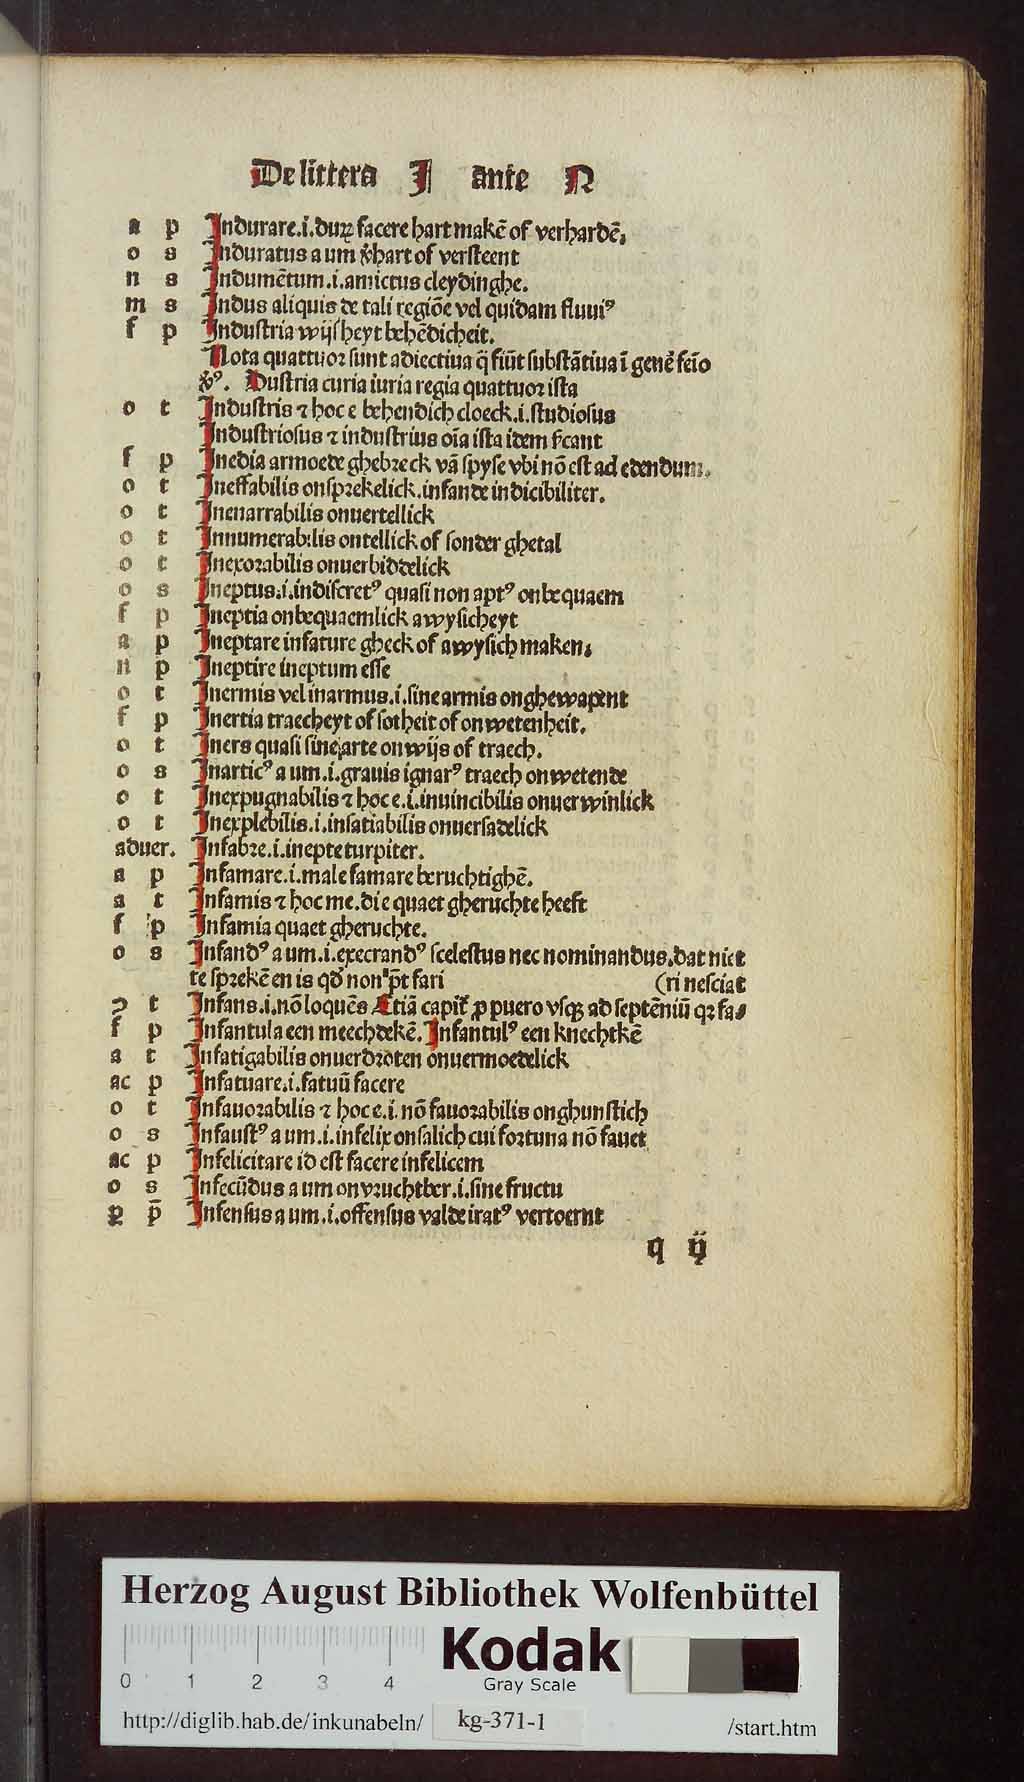 De littera I ante N
a p Indurare.i.duꝝ facere hart makē of verhardē.
o s Induratus a um v̄hart of versteent
n s Indumētum.i.amictus cleydinghe.
m s Indus aliquis de tali regiōe vel quidam fluuiꝰ
f p Industria wijsheyt behēdicheit.
Nota quattuor sunt adiectiua q̄ fiūt substātiua ī genē feīo
v̄ꝰ. Dustria curia iuria regia quattuor ista
o t Industris ⁊ hoc e behendich cloeck.i.studiosus
Industriosus ⁊ industrius oīa ista idem scant
f p Inedia armoede ghebreck vā spyse vbi nō est ad edendum.
o t Ineffabilis onsprekelick.infande indicibiliter.
o t Inenarrabilis onuertellick
o t Innumerabilis ontellick of sonder ghetal
o t Inexorabilis onuerbiddelick
o s Ineptus.i.indiscretꝰ quasi non aptꝰ onbequaem
f p Ineptia onbequaemlick awysicheyt
a p Ineptare infature gheck of awysich maken.
n p Ineptire ineptum esse
o t Inermis vel inarmus.i.sine armis onghewapent
f p Inertia traecheyt of sotheit of onwetenheit.
o t Iners quasi sine arte onwijs of traech.
o s Inarticꝰ a um.i.grauis ignarꝰ traech onwetende
o t Inexpugnabilis ⁊ hoc e.i.inuincibilis onuerwinlick
o t Inexplebilis.i.insatiabilis onuersadelick
aduer. Infabre.i.inepte turpiter.
a p Infamare.i.male famare beruchtighē.
a t Infamis ⁊ hoc me.die quaet gheruchte heeft
f p Infamia quaet gheruchte.
o s Infandꝰ a um.i.execrandꝰ scelestus nec nominandus.dat niet
te sprekē en is qđ non p̄t fari (ri nesciat
ↄ t Infans.i.nō loquēs Etiā capit̄ ꝓ puero vsqꝫ ad septēniū qꝛ fa-
f p Infantula een meechdekē. Infantulꝰ een knechtkē
a t Infatigabilis onuerdroten onuermoedelick
ac p Infatuare.i.fatuū facere
o t Infauorabilis ⁊ hoc e.i.nō fauorabilis onghunstich
o s Infaustꝰ a um.i.infelix onsalich cui fortuna nō fauet
ac p Infelicitare id est facere infelicem
o s Infecūdus a um onvruchtber.i.sine fructu
ꝑ p̄ Infensus a um.i.offensus valde iratꝰ vertoernt
q ij
Herzog August Bibliothek Wolfenbüttel
0 1 2 3 4
Kodak
Gray Scale
http://diglib.hab.de/inkunabeln/ kg-371-1 /start.htm